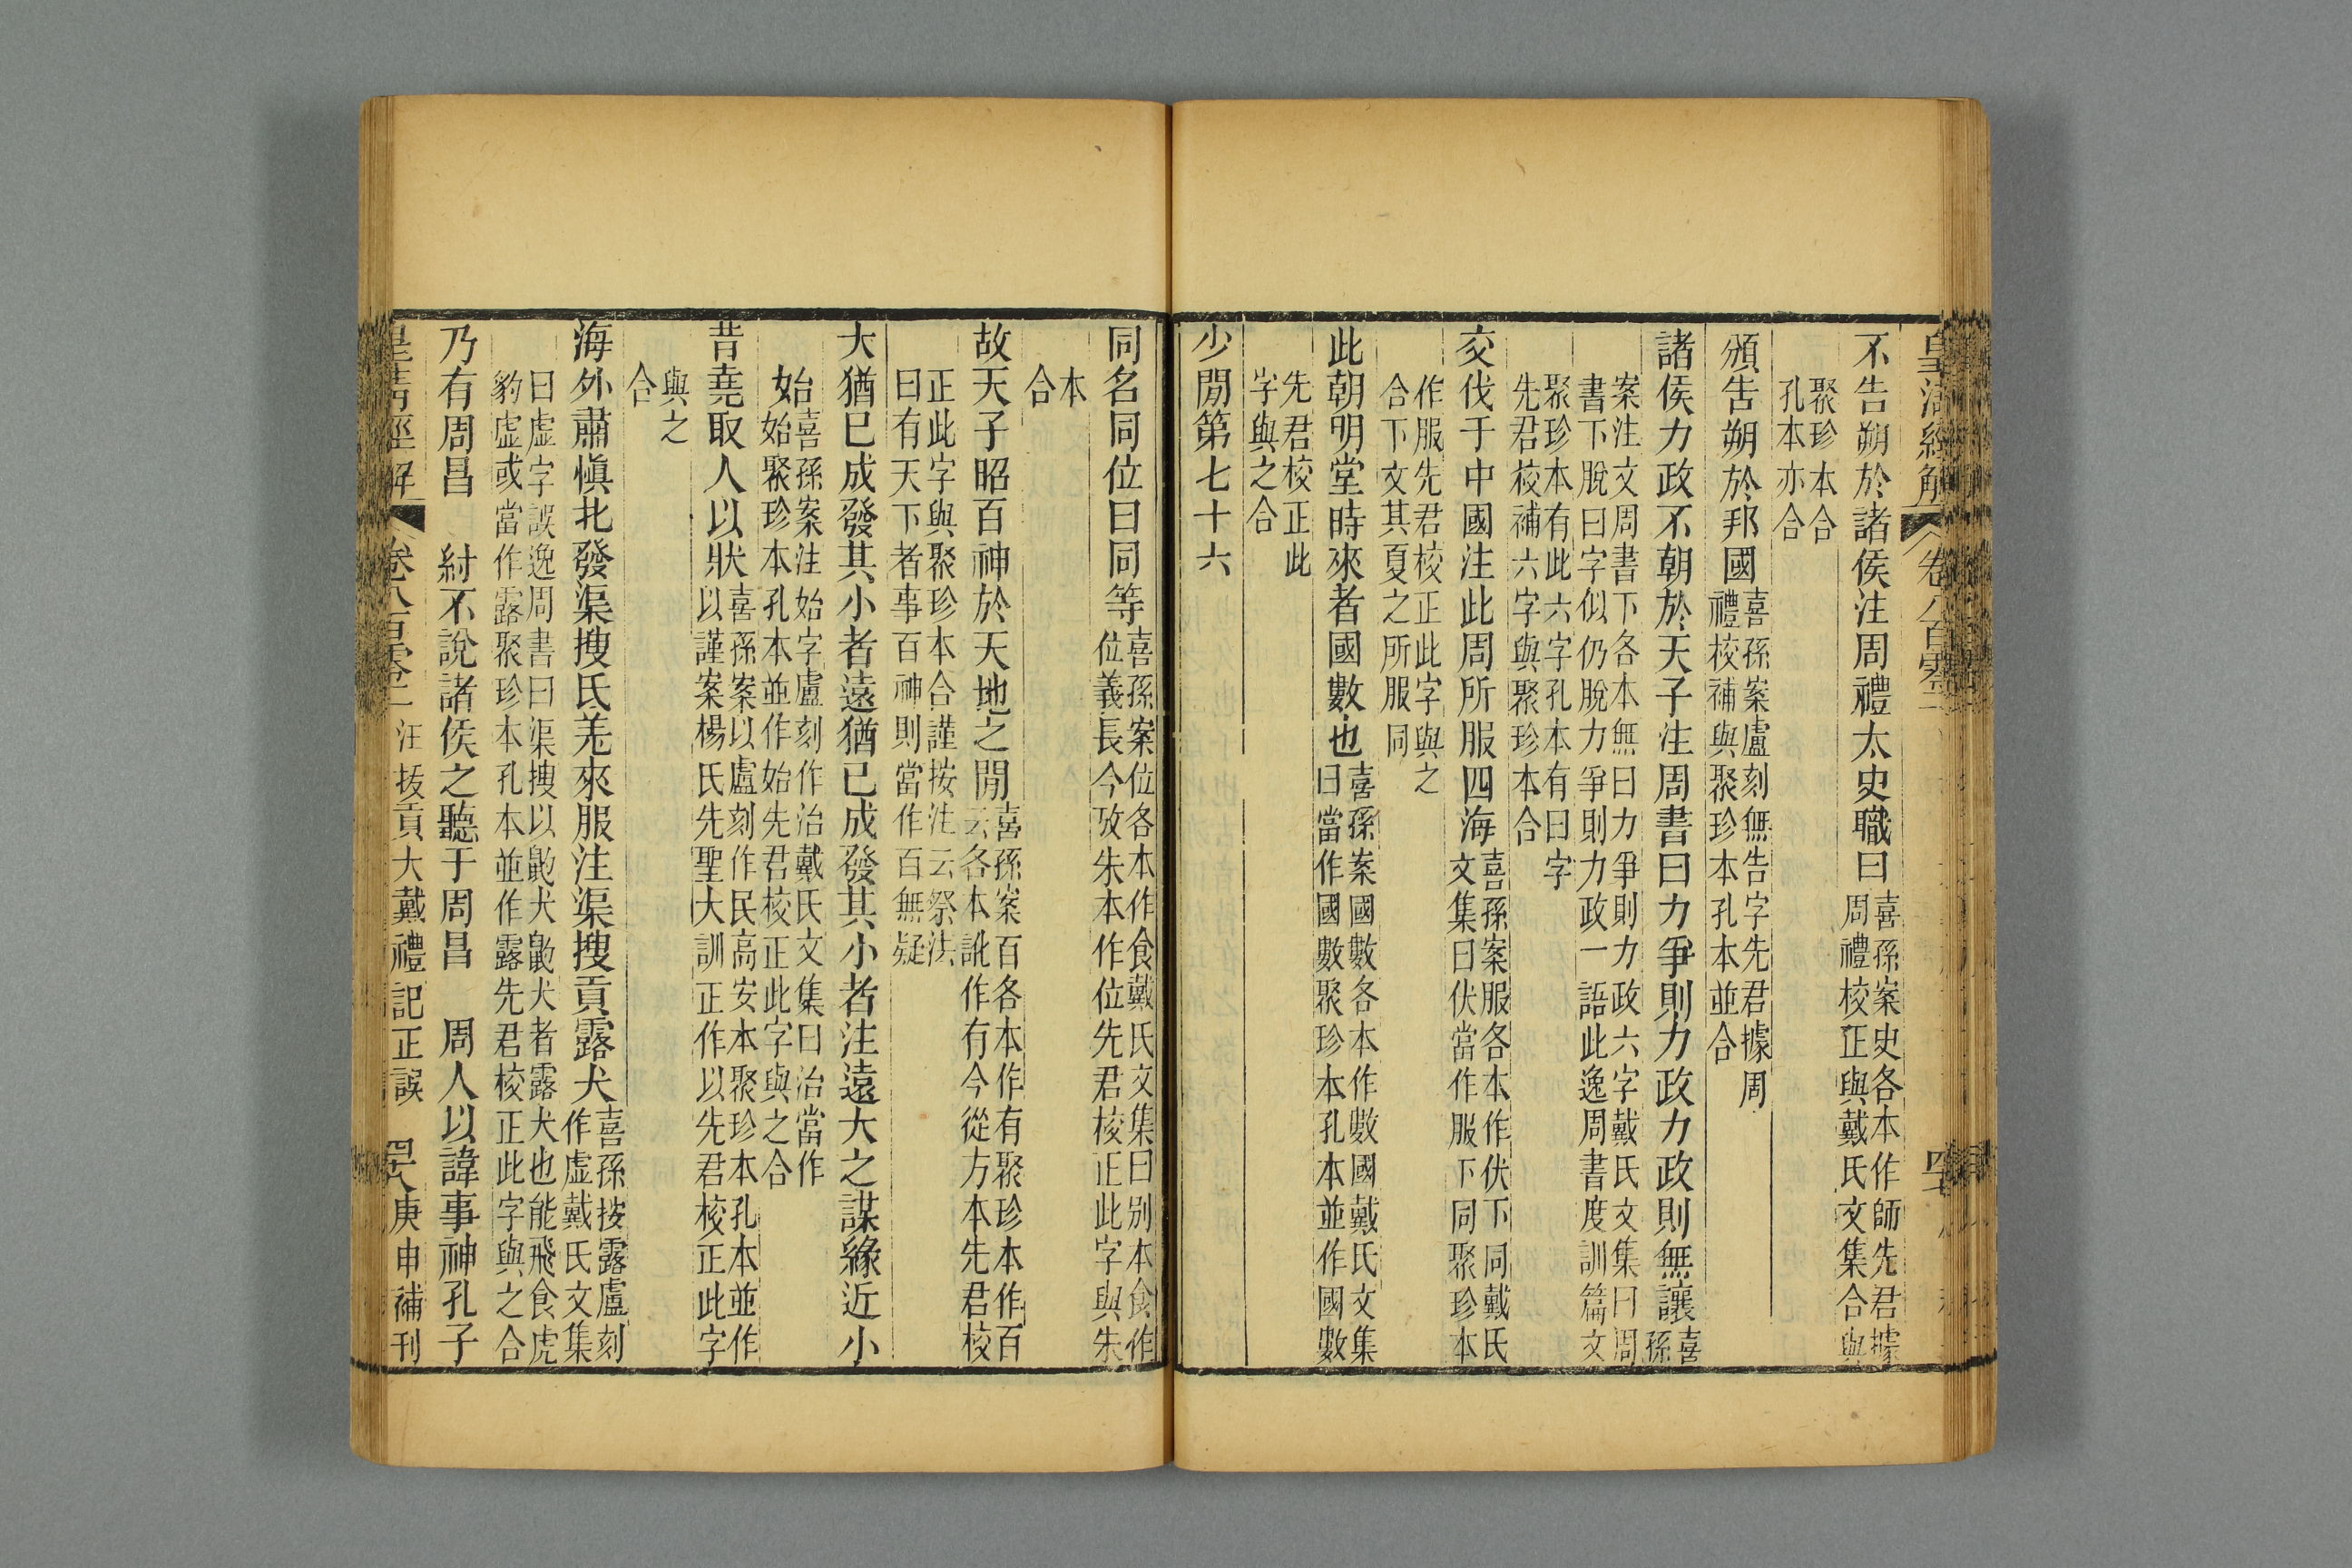 皇清經解
卷八百零二
不告朔於諸侯注周禮太史職曰喜孫案史各本作師先君據
周禮校正與戴氏文集合與
聚珍本合
孔本亦合
頒告朔於邦國喜孫案盧刻無告字先君據周
禮校補與聚珍本孔本並合
諸侯力政不朝於天子注周書曰力爭則力政力政則無讓喜
孫
案注文周書下各本無曰力爭則力政六字戴氏文集曰周
書下脫曰字似仍脫力爭則力政一語此逸周書度訓篇文
聚珍本有此六字孔本有曰字
先君校補六字與聚珍本合
交伐于中國注此周所服四海喜孫案服各本作伏下同戴氏
文集曰伏當作服下同聚珍本
作服先君校正此字與之
合下文其夏之所服同
此朝明堂時來者國數也喜孫案國數各本作數國戴氏文集
曰當作國數聚珍本孔本並作國數
先君校正此
字與之合
少閒第七十六
同名同位曰同等喜孫案位各本作食戴氏文集曰别本食作
位義長今攷朱本作位先君校正此字與朱
本
合
故天子昭百神於天地之閒喜孫案百各本作有聚珍本作百
云各本訛作有今從方本先君校
正此字與聚珍本合謹按注云祭法
曰有天下者事百神則當作百無疑
大猶已成發其小者遠猶已成發其小者注遠大之謀緣近小
始喜孫案注始字盧刻作治戴氏文集曰治當作
始聚珍本孔本並作始先君校正此字與之合
昔堯取人以狀喜孫案以盧刻作民高安本聚珍本孔本並作
以謹案楊氏先聖大訓正作以先君校正此字
與之
合
海外肅愼北發渠搜氐羌來服注渠搜貢露犬喜孫按露盧刻
作虛戴氏文集
曰虛字誤逸周書曰渠搜以䶂犬䶂犬者露犬也能飛食虎
豹虛或當作露聚珍本孔本並作露先君校正此字與之合
乃有周昌 紂不說諸侯之聽于周昌 周人以諱事神孔子
皇清經解 卷八百零二 汪拔貢大戴禮記正誤 庚申補刊